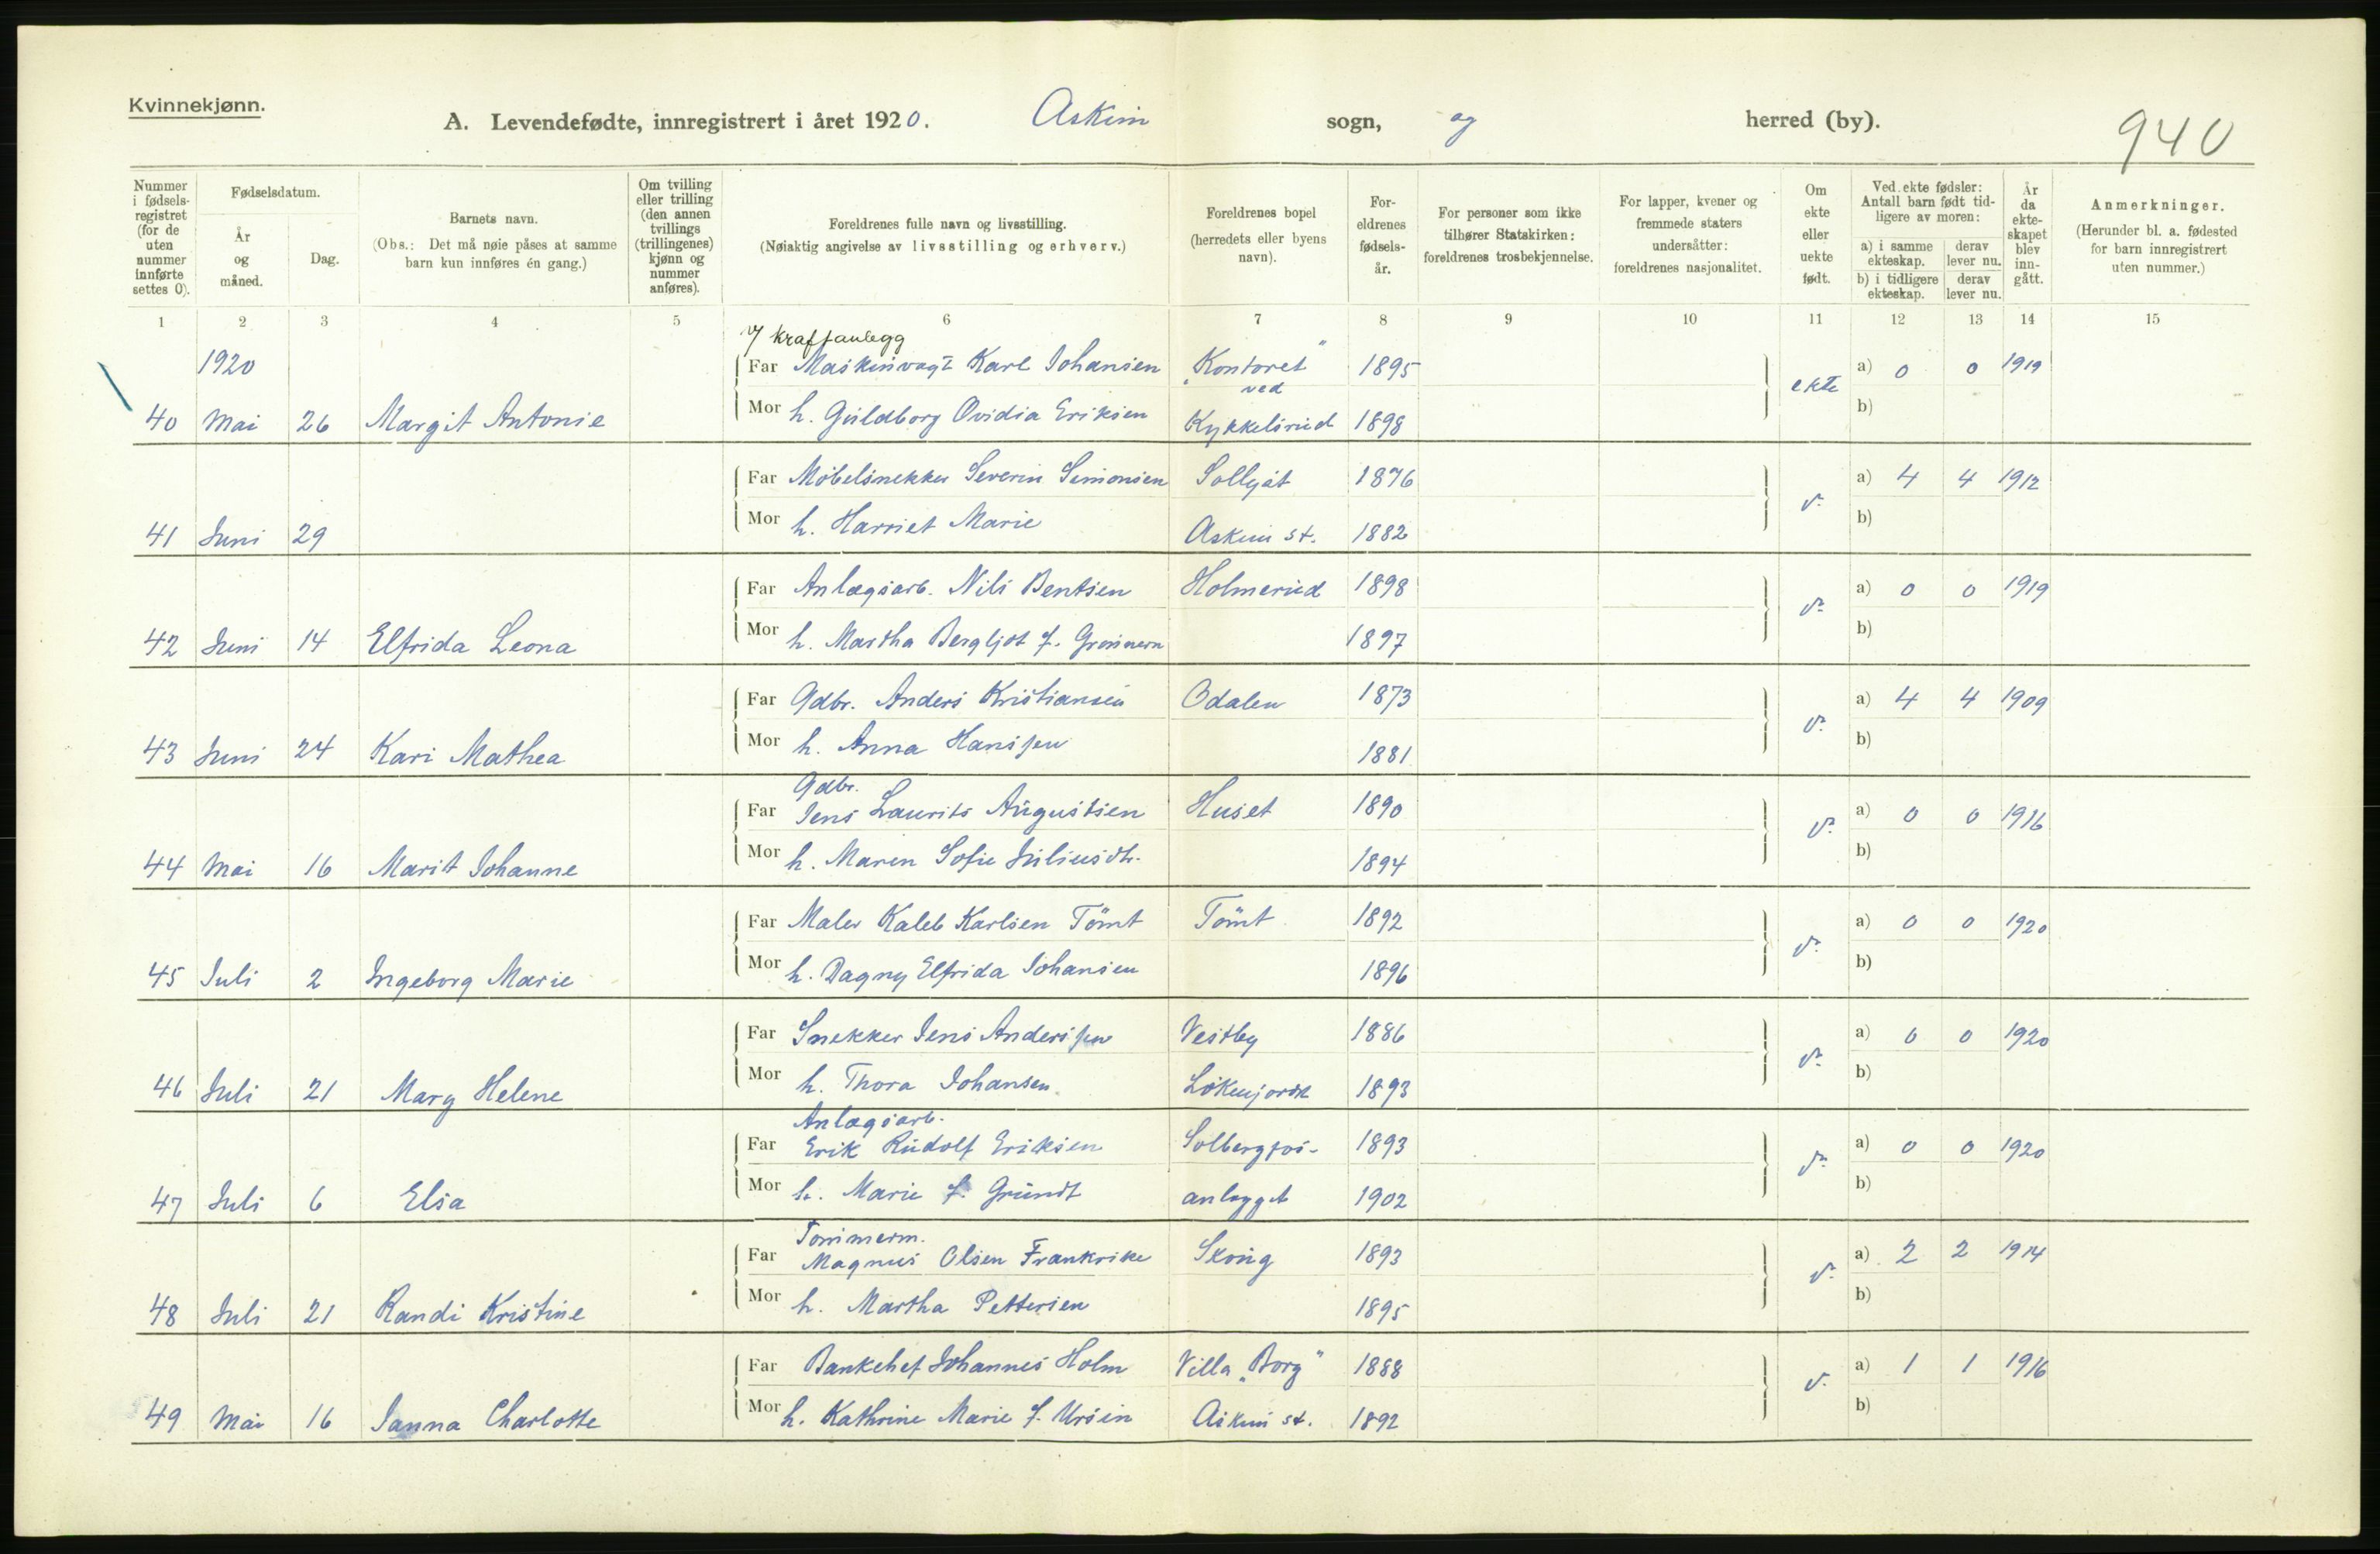 Kvinnekjønn.
A. Levendefødte, innregistrert i året 1920. Askim sogn, og herred (by). 940
Nummer i fødsels-registret (for de uten nummer innførte settes 0).
Fødselsdatum.
År og måned.
Dag.
Barnets navn.
(Obs.: Det må nøie påses at samme barn kun innføres én gang.)
Om tvilling eller trilling (den annen tvillings (trillingenes) kjønn og nummer anføres).
Foreldrenes fulle navn og livsstilling.
(Nøiaktig angivelse av livsstilling og erhverv.)
Foreldrenes bopel (herredets eller byens navn).
For-eldrenes fødsels-år.
For personer som ikke tilhører Statskirken: foreldrenes trosbekjennelse.
For lapper, kvener og fremmede staters undersåtter: foreldrenes nasjonalitet.
Om ekte eller uekte født.
Ved ekte fødsler: Antall barn født tid-ligere av moren:
a) i samme ekteskap. derav lever nu.
b) i tidligere ekteskap. derav lever nu.
År da ekte-skapet blev inn-gått.
Anmerkninger.
(Herunder bl. a. fødested for barn innregistrert uten nummer.)
1 2 3 4 5 6 7 8 9 10 11 12 13 14 15
v/ kraftanlegg
1920 Far Maskinvagt Karl Johansen "Kontoret" 1895 ekte a) 0 0 1919
ved
40 Mai 26 Margit Antonie Mor h. Guldborg Ovidia Eriksen Kykkelsrud 1898 b)
Far Møbelsnekker Severin Simonsen Solly 1876 v. a) 4 4 1912
41 Juni 29 Mor h. Harriet Marie Askim st. 1882 b)
Far Anlægsarb. Nils Bentsen Holmerud 1898 v. a) 0 0 1919
42 Juni 14 Elfrida Leona Mor h. Martha Bergljot f. 1897 b)
Far Gdbr. Anders Kristiansen Odalen 1873 v. a) 4 4 1909
43 Juni 24 Kari Mathea Mor h. Anna Hanssen 1881 b)
Gdbr.
Far Jens Laurits Augustsen Huset 1890 v. a) 0 0 1916
44 Mai 16 Marit Johanne Mor h. Maren Sofie Juliusdtr. 1894 b)
Far Maler Kaleb Karlsen Tömt Tömt 1892 v. a) 0 0 1920
45 Juli 2 Ingeborg Marie Mor h. Dagny Elfrida Johansen 1896 b)
Far Snekker Jens Anderssen Vestby 1886 v. a) 0 0 1920
46 Juli 21 Mary Helene Mor h. Thora Johansen 1893 b)
Anlægsarb.
Far Erik Rudolf Eriksen Solbergfos- 1893 v. a) 0 0 1920
47 Juli 6 Elsa Mor h. Marie f. Grundt anlegget 1902 b)
Tømmerm.
Far Magnus Olsen Frankrike Skoug 1893 v. a) 2 2 1914
48 Juli 21 Randi Kristine Mor h. Martha Pettersen 1895 b)
Far Bankchef Johannes Holm Villa "Borg" 1888 v. a) 1 1 1916
49 Mai 16 Janna Charlotte Mor h. Kathrine Marie f. Ursin Askim st. 1892 b)